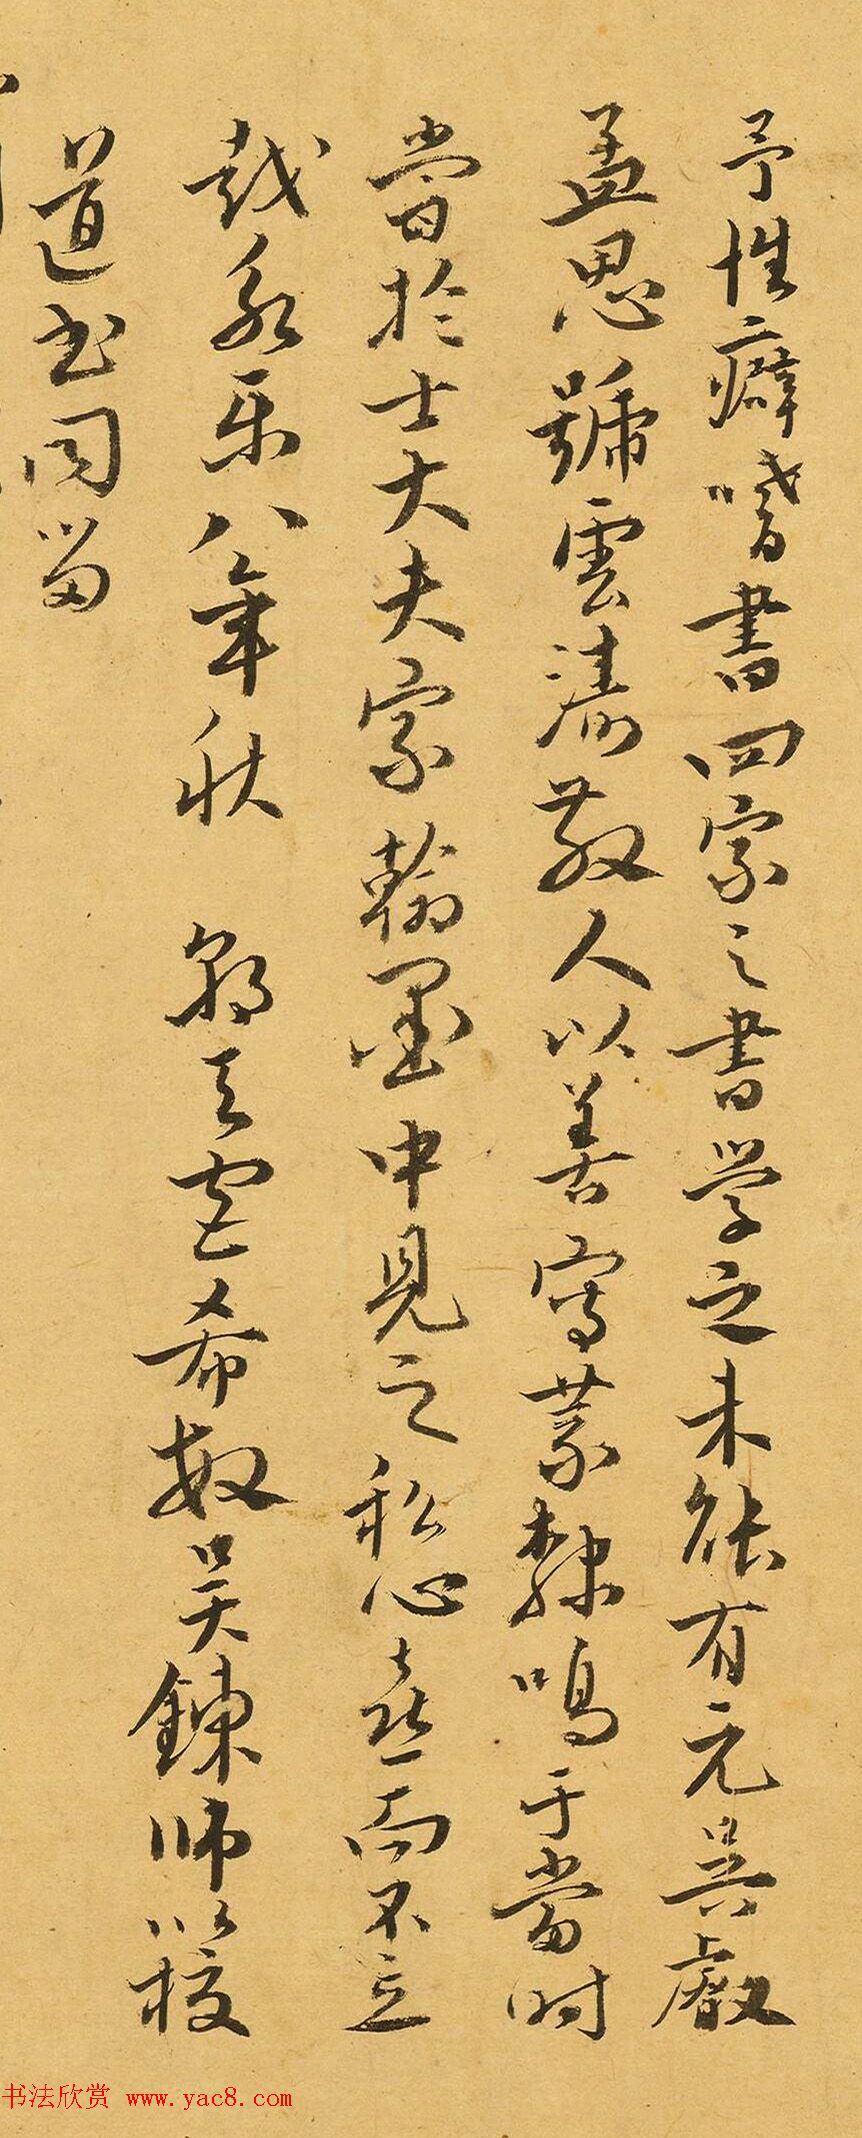 予性癖嗜書四家之書學之未能有元吳叡
孟思號雲濤散人以善寫篆隸鳴于當時
嘗於士大夫家翰墨中見之私心喜而不忘
越永樂八年秋朝天宮希敏吳鍊師以校
道書同留
书法欣赏 www.yac8.com